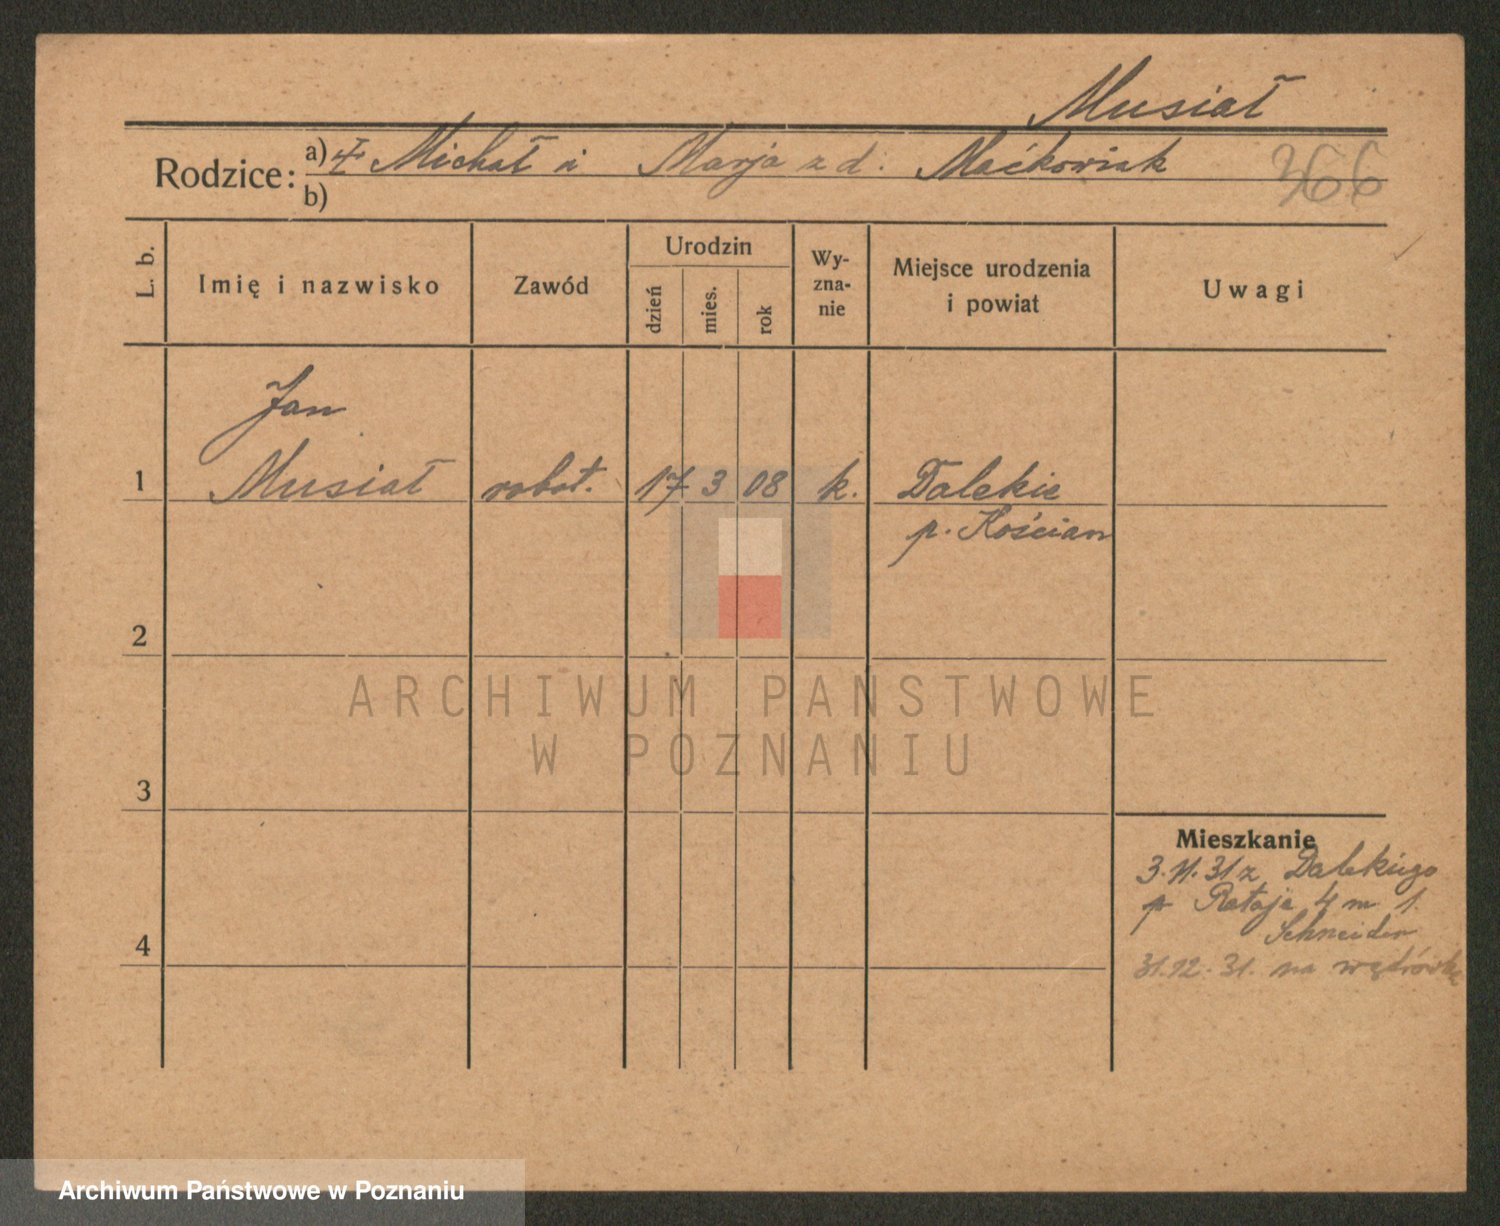 Musiał
Rodzice: a) ✝ Michał i Marja z d. Maćkowiak 366
b)
L. b. Imię i nazwisko Zawód Urodzin dzień mies. rok Wy-zna-nie Miejsce urodzenia i powiat Uwagi
Jan
1 Musiał robot. 17 3 08 k. Dalekie
p. Kościan
2
ARCHIWUM PAŃSTWOWE
W POZNANIU
3
Mieszkanie
3.11.31 z Dalekiego
p Rataje 4 m 1.
Schneider
4
31.12.31. na wędrówkę
Archiwum Państwowe w Poznaniu